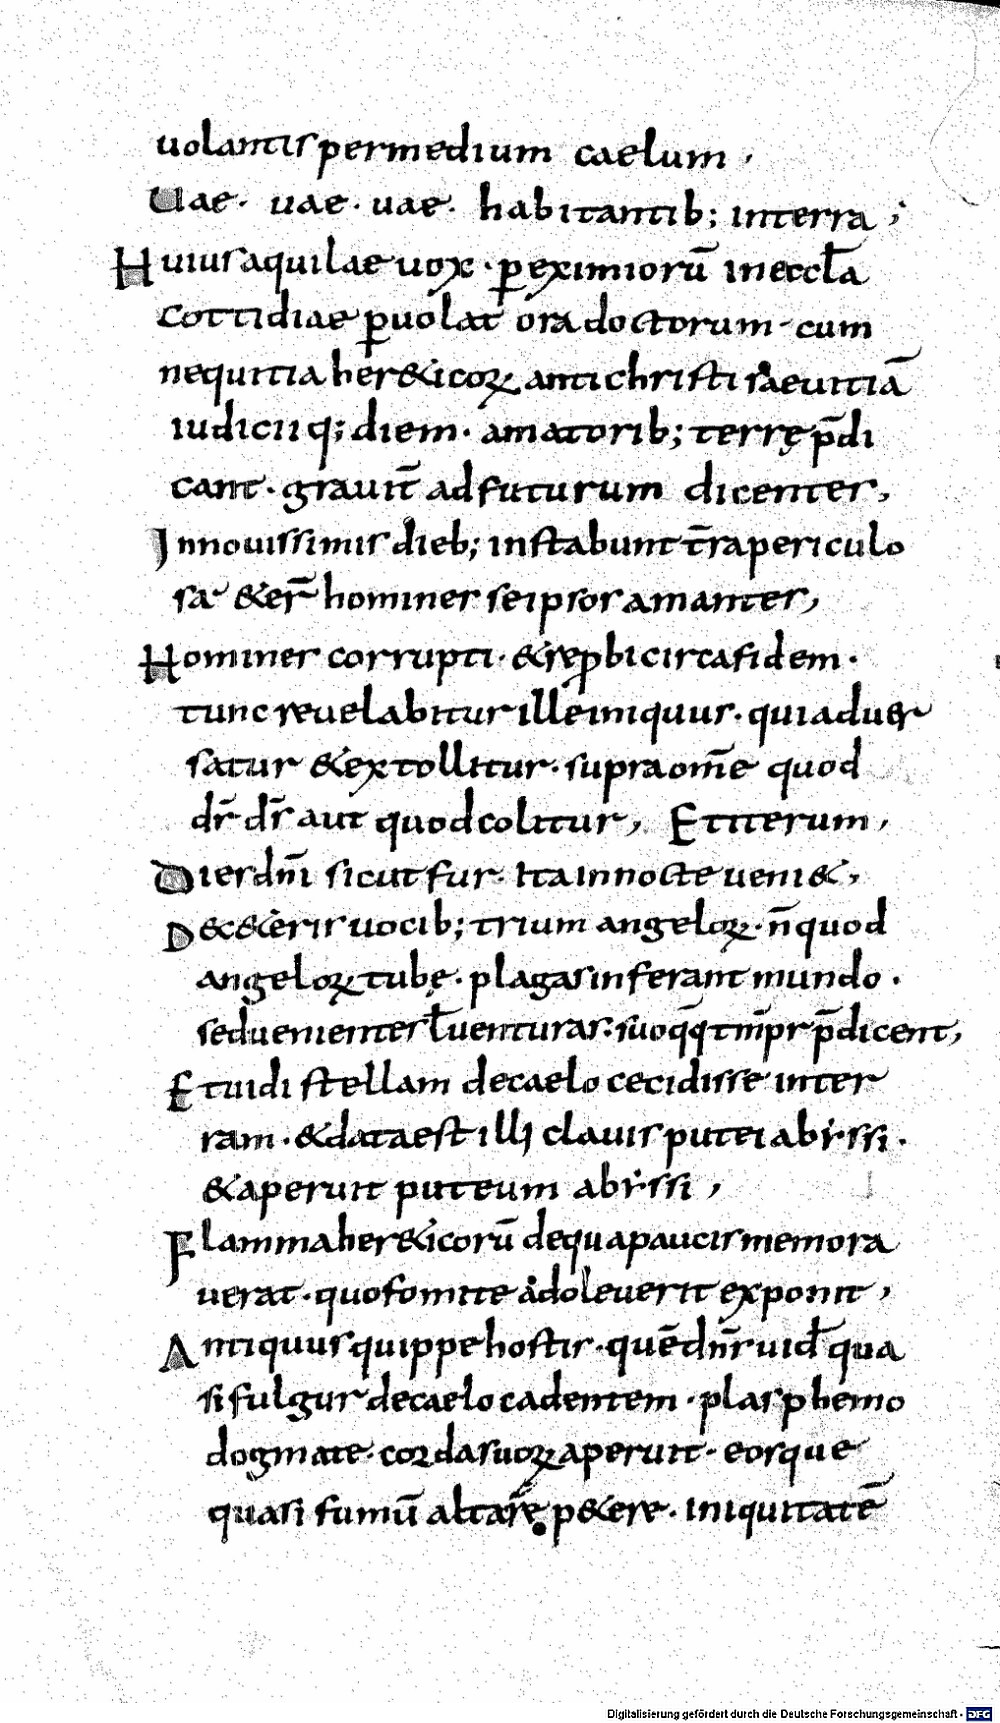 uolantis per medium caelum,
Uae. uae. uae. habitantib; in terra;
Huius aquilae uox. p eximiorū in eccƚa
Cottidiae puolat ora doctorum. cum
nequitia her&icoꝝ antichristi saeuitiā
iudicii q; diem. amatorib; terrę p̄di
cant. grauit̄ ad futurum dicentes,
In nouissimis dieb; instabunt t̄pa periculo
sa &er̄ homines seipsos amantes,
Homines corrupti. & repbi circa fidem.
tunc reuelabitur ille iniquus. qui aduer
satur & extollitur. supra om̄e quod
dr̄ dr̄ aut quod colitur, Et iterum,
Dies dn̄i sicut fur. Ita in nocte ueni&,
D& c&eris uocib; trium angeloꝝ. n̄ quod
angeloꝝ tubę. plagas inferant mundo.
sed uenientes ƚ uenturas: suo q̄q; tm̄pr p̄dicent,
Et uidi stellam de caelo cecidisse in ter
ram. & data est illi clauis putei abissi.
& aperuit puteum abissi,
Flamma her&icorū de qua paucis memora
uerat. quo fomite adoleuerit exponit,
Antiquus quippe hostis. quē dn̄s uid̄ qua
si fulgur de caelo cadentem. plasphemo
dogmate. corda suoꝝ aperuit. eosque
quasi fumū altare p&ere. iniquitatē
Digitalisierung gefördert durch die Deutsche Forschungsgemeinschaft - DFG